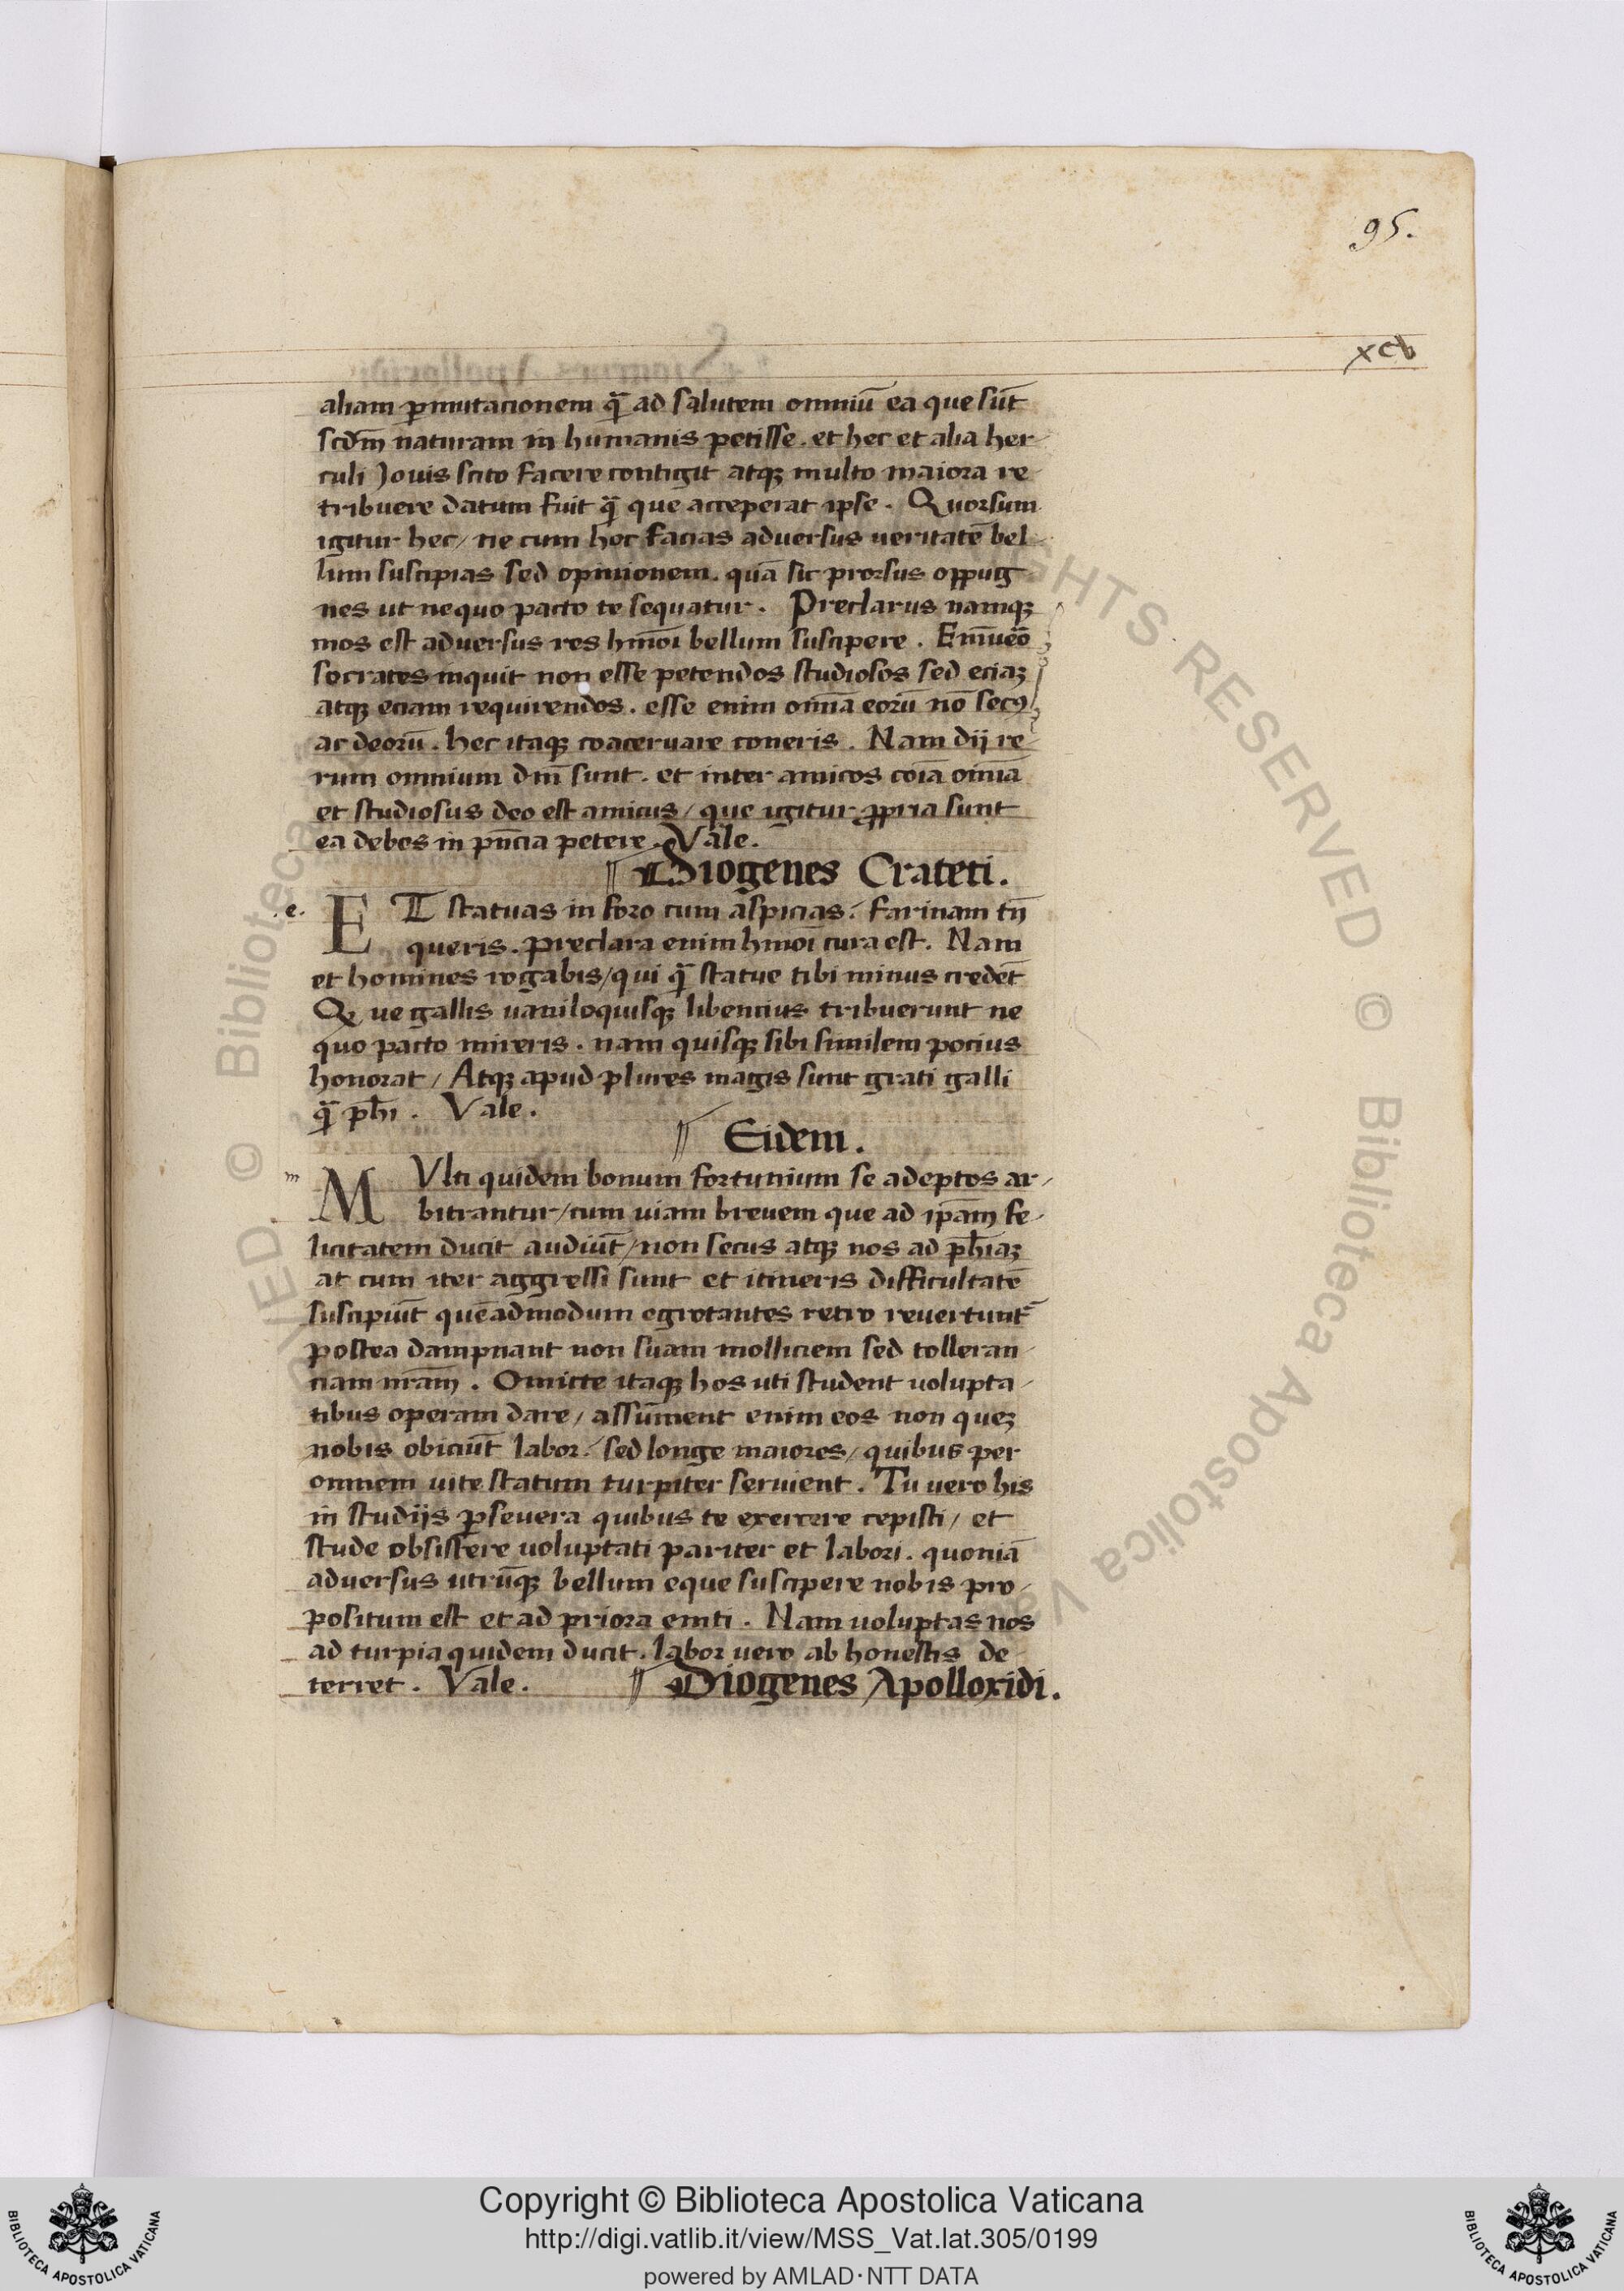 95.
xcv
aliam ꝑmutacionem q̄ ad salutem omniū ea que sūt
scdm̄ naturam in humanis petisse. et hec et alia her-
culi Jouis scito facere contigit atqꝫ multo maiora re-
tribuere datum fuit q̄ que acceperat ipse. Quorsum
igitur hec / ne cum hoc facias aduersus ueritatē bel-
lum suscipias sed opinionem. quā sic prorsus oppug-
nes ut nequo pacto te sequatur. Preclarus namqꝫ
mos est aduersus res hm̄oi bellum suscipere. Enīueō
socrates inquit non esse petendos studiosos sed eciaꝫ
atqꝫ eciam requirendos. esse enim om̄ia eorū nō secꝰ
ac deorū. hec itaqꝫ coaceruare coneris. Nam dij re-
rum omnium dn̄i sunt. et inter amicos coīa om̄ia
et studiosus deo est amicus / que igitur ꝓpria sunt
ea debes in pn̄cia petere. Vale.
Diogenes Crateti.
.e.
ET statuas in foro cum aspicias / farinam tn̄
queris. preclara enim hm̄oi cura est. Nam
et homines rogabis / qui q̄ statue tibi minus credēt
Que gallis uaniloquisqꝫ libencius tribuerunt ne
quo pacto mireris. nam quisqꝫ sibi similem pocius
honorat / Atqꝫ apud plures magis sunt grati galli
q̄ ph̄i. Vale.
Eidem.
m
MVlti quidem bonum fortunium se adeptos ar-
bitrantur / cum uiam breuem que ad ip̄am fe-
licitatem ducit audiūt / non secus atqꝫ nos ad ph̄iaꝫ
at cum iter aggressi sunt et itineris difficultatē
suscipiūt quēadmodum egrotantes retro reuertunt᷑
postea dampnant non suam molliciem sed tolleran-
ciam nr̄am. Omitte itaqꝫ hos uti student uolupta-
tibus operam dare / assūment enim eos non queꝫ
nobis obiciūt labor / sed longe maiores / quibus per
omnem uite statum turpiter seruient. Tu uero his
in studijs ꝑseuera quibus te exercere cepisti / et
stude obsistere uoluptati pariter et labori. quoniā
aduersus utrūqꝫ bellum eque suscipere nobis pro-
positum est et ad priora eniti. Nam uoluptas nos
ad turpia quidem ducit. labor uero ab honestis de-
terret. Vale. Diogenes Apolloxidi.
Copyright © Biblioteca Apostolica Vaticana
http://digi.vatlib.it/view/MSS_Vat.lat.305/0199
powered by AMLAD·NTT DATA